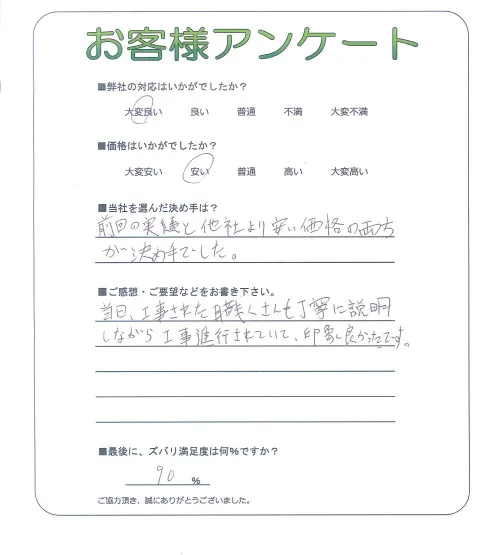 お客様アンケート
■弊社の対応はいかがでしたか？
大変良い 良い 普通 不満 大変不満
■価格はいかがでしたか？
大変安い 安い 普通 高い 大変高い
■当社を選んだ決め手は？
前回の実績と他社より安い価格の両方
が決め手でした。
■ご感想・ご要望などをお書き下さい。
当日、工事された職人さんも丁寧に説明
しながら工事進行されていて、印象も良かったです。
■最後に、ズバリ満足度は何%ですか？
90 %
ご協力頂き、誠にありがとうございました。